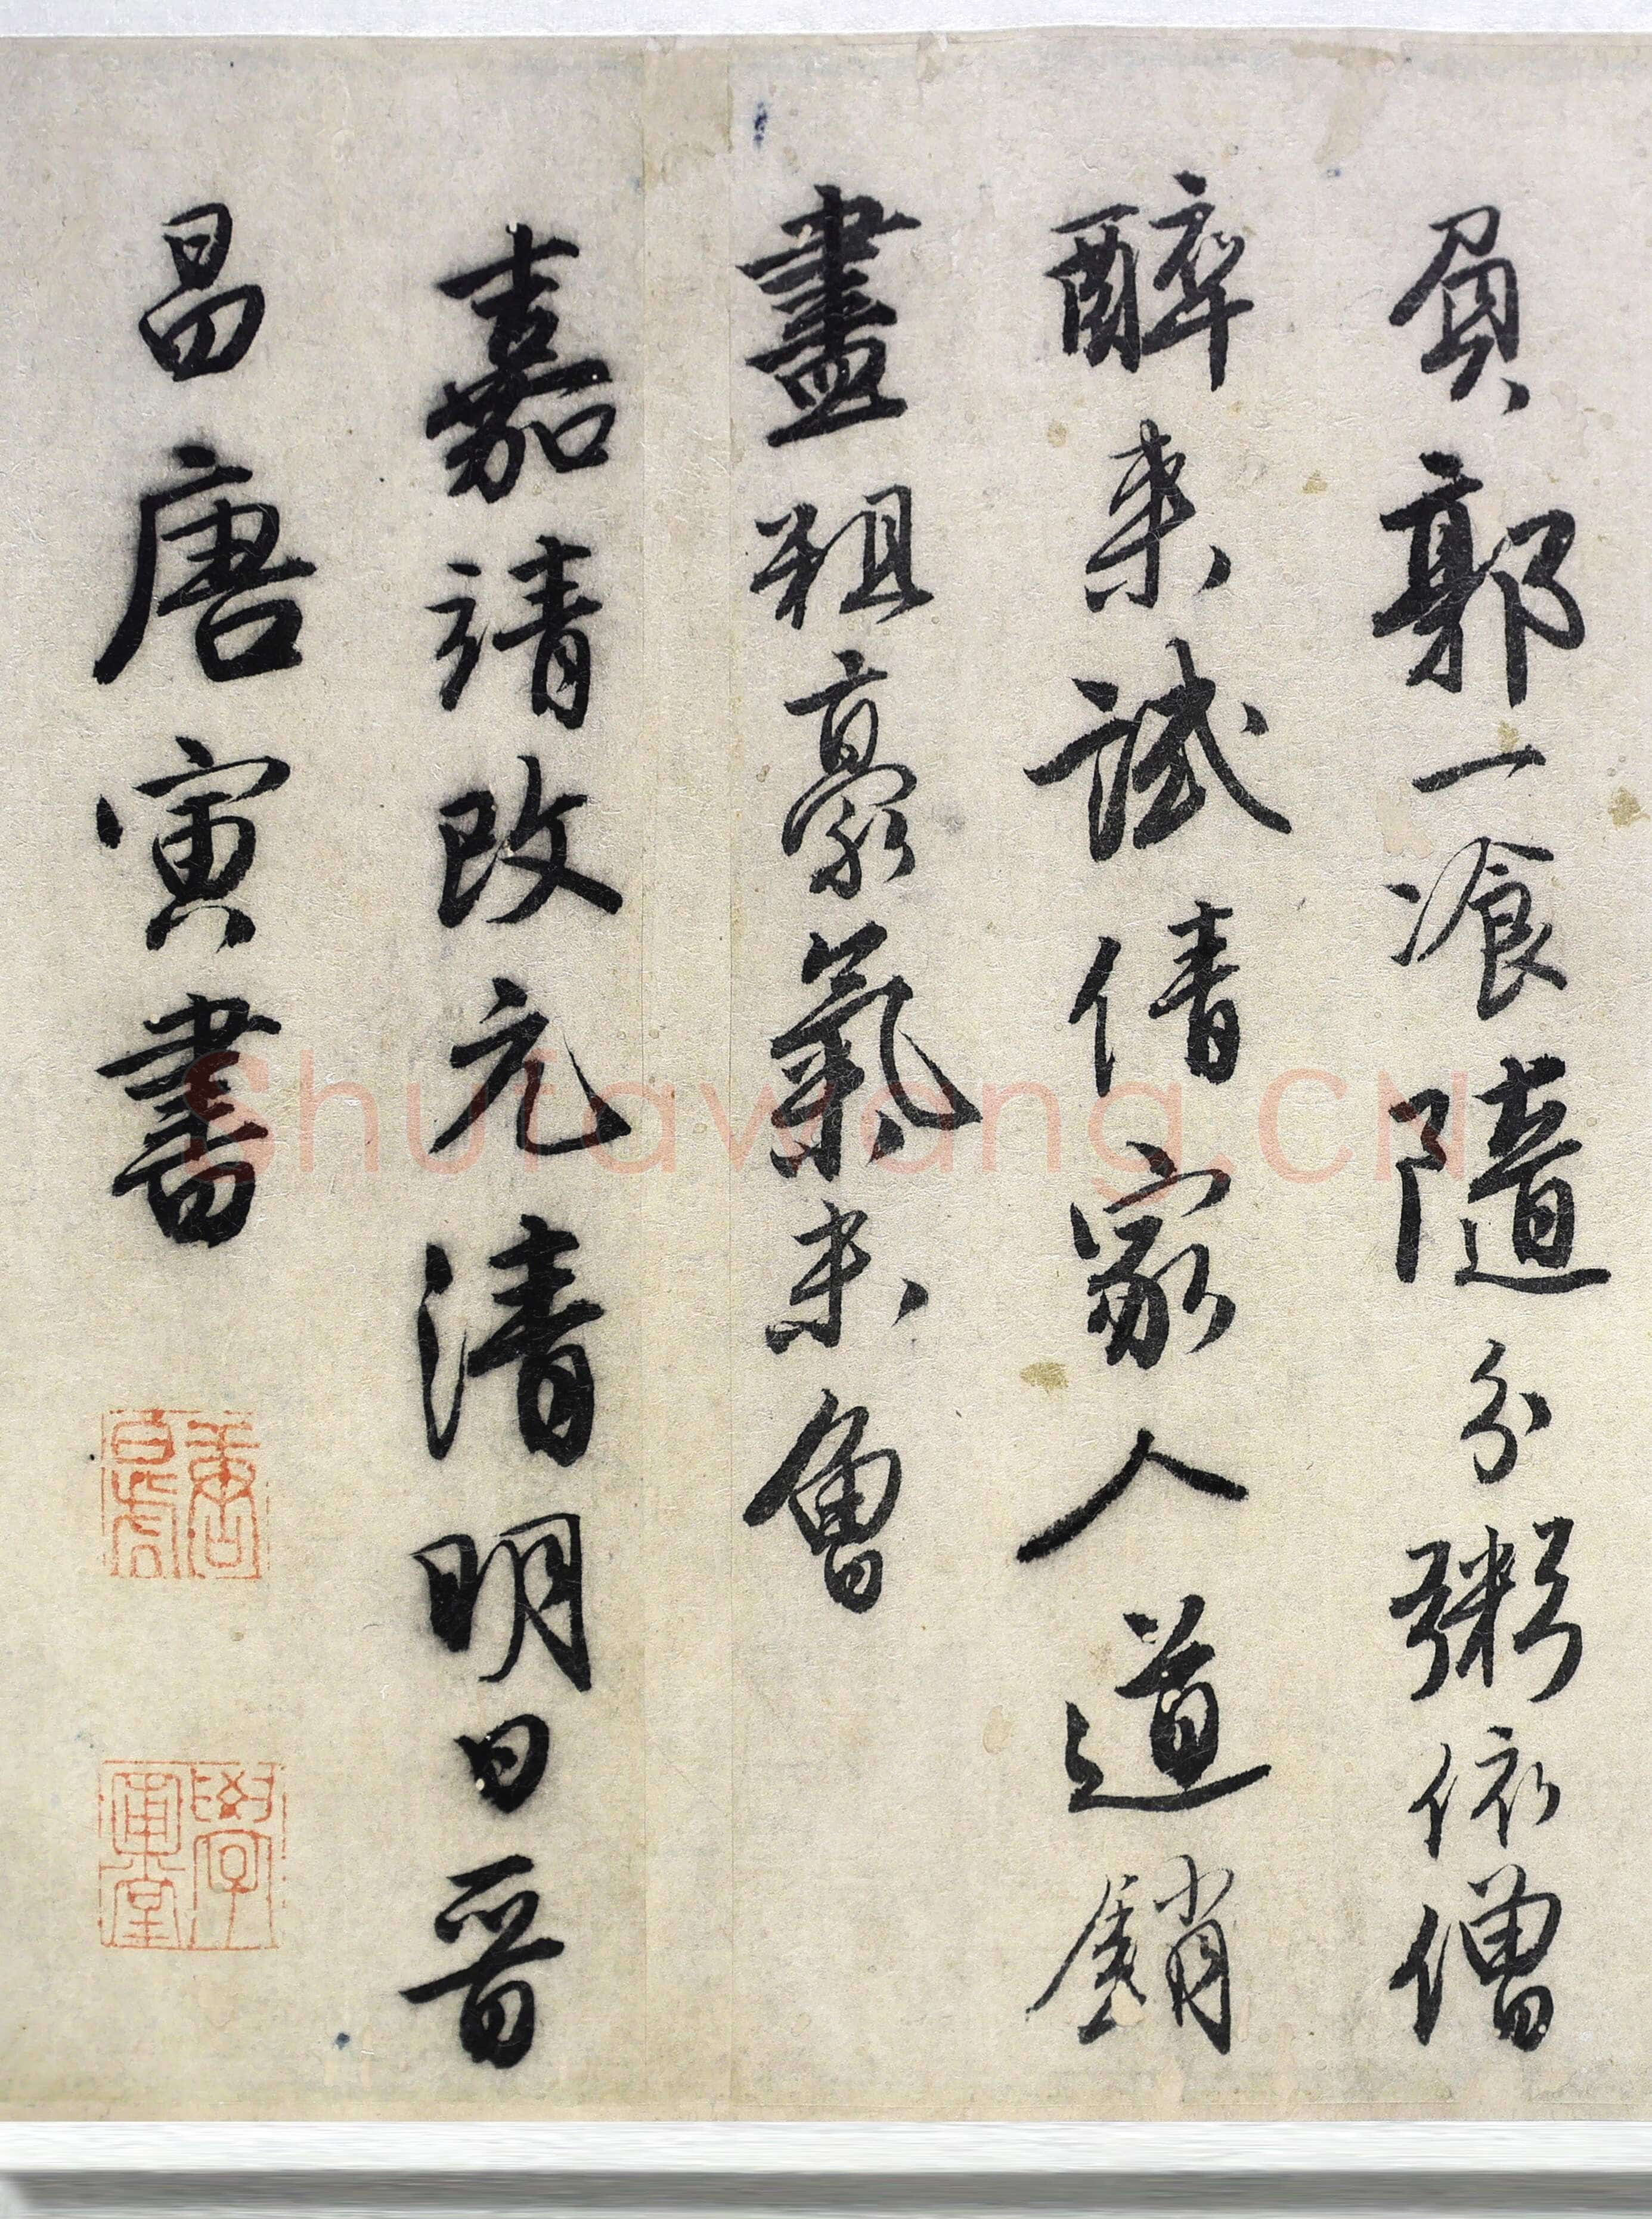 負郭一飡隨分粥依僧
醉来試倩家人道銷
盡粗豪氣未曾
嘉靖改元清明日晋
昌唐寅書
唐白虎
學圃堂
Shufawang.CN